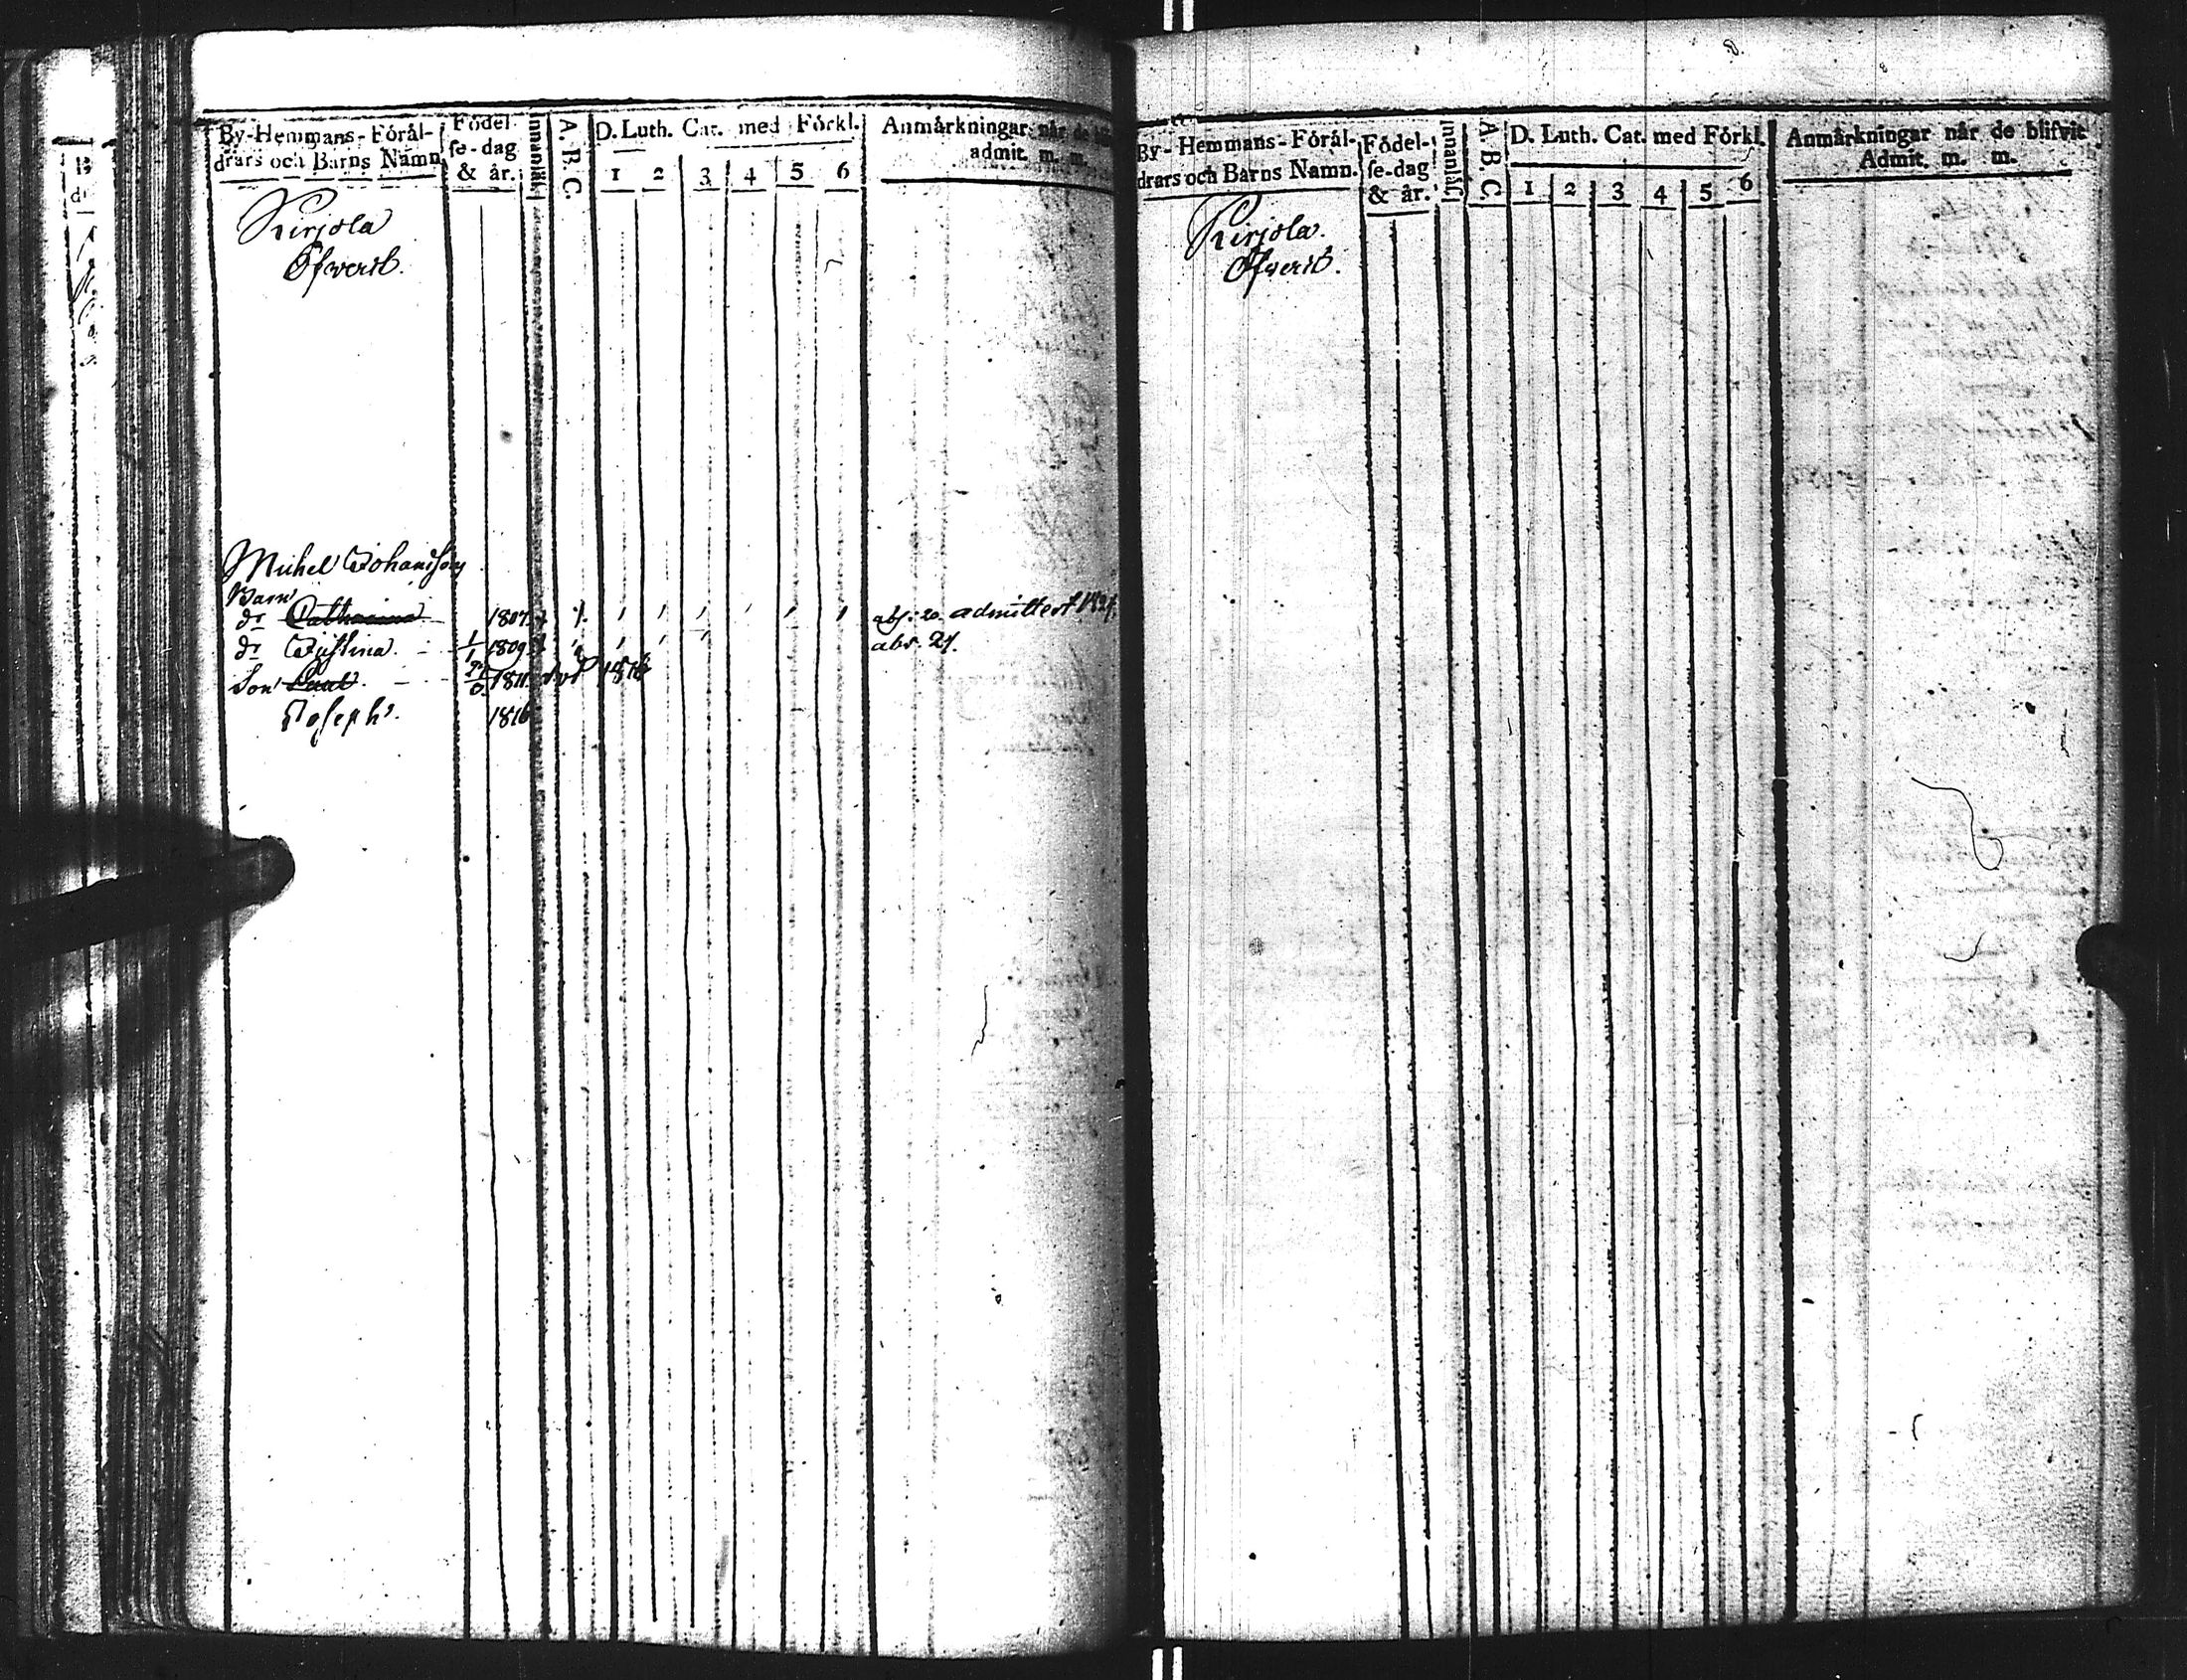 By-Hemmans-Föräl-
drars och Barns Namn.
Födel-
se-dag
& år.
Innanläs
A. B. C.
D. Luth. Cat. med Förkl.
1 2 3 4 5 6
Anmärkningar når de
admit. m. m.
Kirjola
Öfwerst.
Michel Johansson
Barn
dr Catharina 1807 abs: 20. admittert 1821.
dr Justina. 1/1 1809 abs. 21.
Son Paul. 1811. död 1816
Joseph. 1816
By-Hemmans-Föräl-
drars och Barns Namn.
Födel-
se-dag
& år.
Innanläs
A. B. C.
D. Luth. Cat. med Förkl.
1 2 3 4 5 6
Anmärkningar når de blifvit
Admit. m. m.
Kirjola.
Öfwerst.